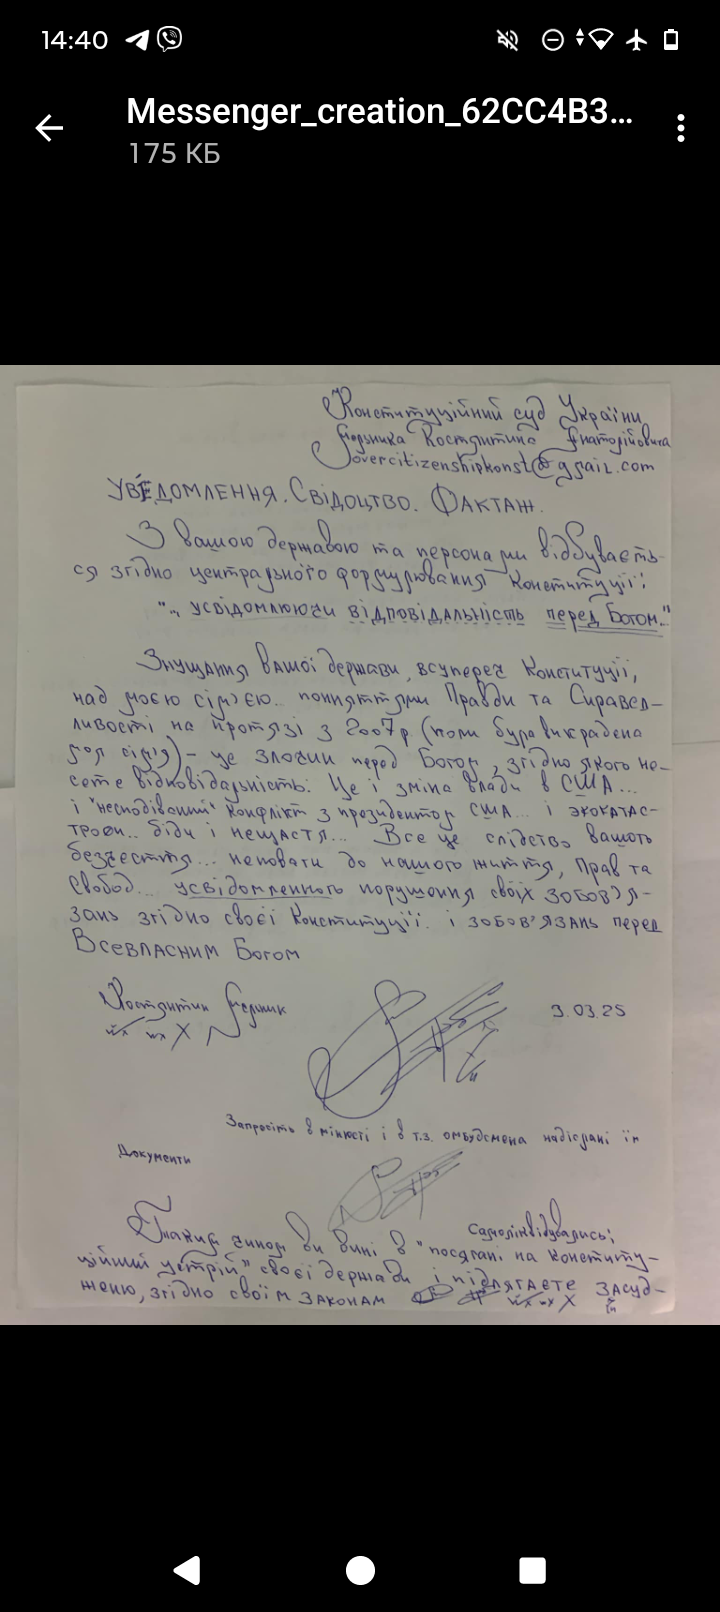 14:40
Messenger_creation_62CC4B3...
175 КБ
Конституційний суд України
Мельника Костянтина Анатолійовича
Sovercitizenshipkonst@gmail.com
УВЕДОМЛЕННЯ. СВІДОЦТВО. ФАКТАЖ.
З вашою державою та персонами відбуваєть-
ся згідно центрального формулювання Конституції:
"... УСВІДОМЛЮЮЧИ ВІДПОВІДАЛЬНІСТЬ перед Богом.."
Знущання вашої держави, всупереч Конституції,
над моєю сім'єю.. поняттями Правди та Справед-
ливості на протязі з 2007р (коли була викрадена
моя сім'я) – це злочин перед Богом, згідно якого не-
сете відповідальність. Це і зміна влади в США...
і "несподіваний" конфлікт з президентом США... і экокатас-
трофи.. біди і нещастя... Все це слідство вашого
безчестя... неповаги до нашого життя, Прав та
Свобод... усвідомленного порушення своїх ЗОБОВ'Я-
зань згідно своєї Конституції. і ЗОБОВ'ЯЗАНЬ перед
Всевласним Богом
Костянтин Мельник
9.03.25
Запросіть в мінюсті і в т.з. омбудсмена надіслані їм
Документи
Самоліквідувались;
Таким чином ви вині в "посягані на конститу-
ційний устрій" своєї держави і підлягаєте Засуд-
женю, згідно своїм ЗАКОНАМ